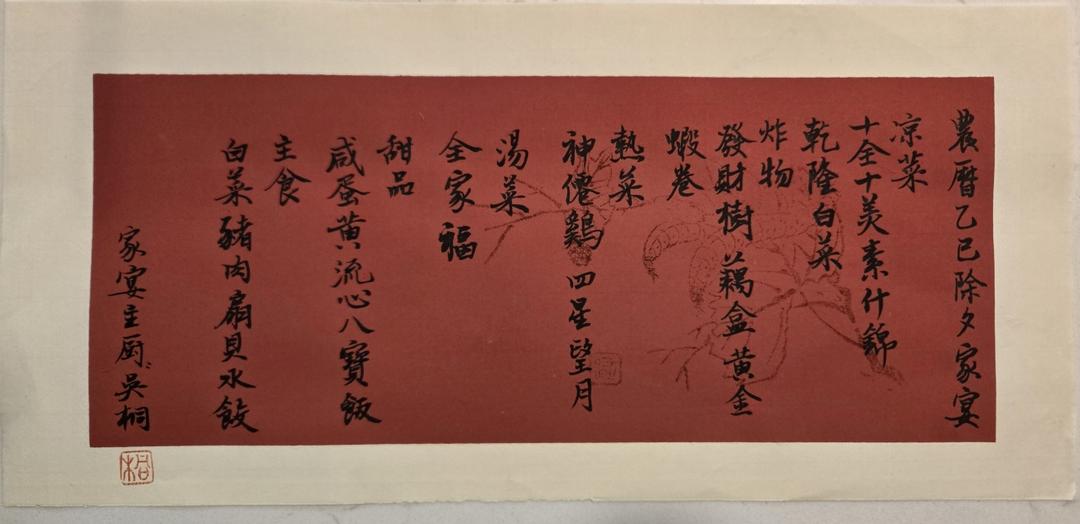 農曆乙巳除夕家宴
凉菜
十全十美素什錦
乾隆白菜
炸物
發財樹 藕盒 黃金
蝦卷
熱菜
神僊鷄 四星望月
湯菜
全家福
甜品
咸蛋黃流心八寶飯
主食
白菜豬肉扇貝水餃
家宴主厨吳桐